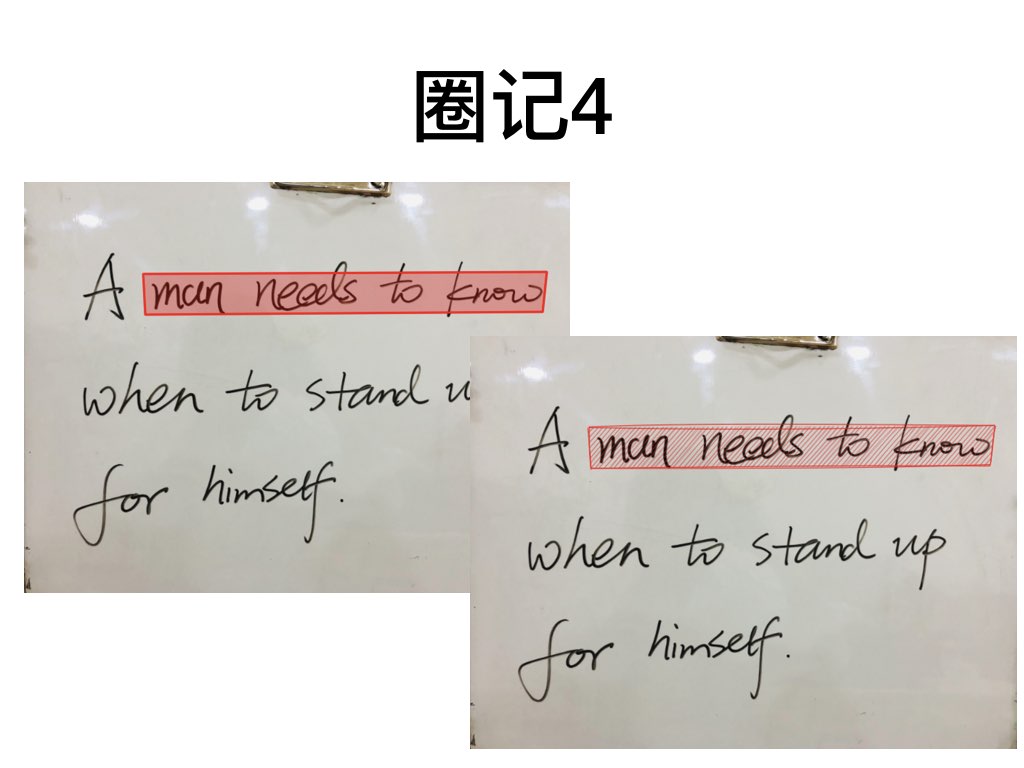 圈记4
A man needs to know
when to stand u
for himself.
A man needs to know
when to stand up
for himself.